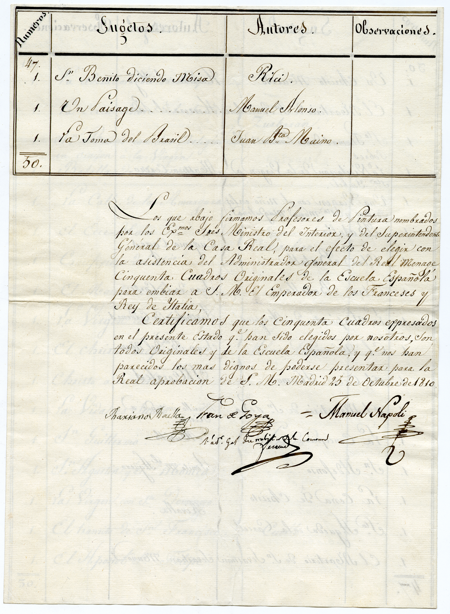 Numeros Sugetos. Autores. Observaciones.
47.
1. Sn. Benito diciendo Misa Rici
1. Un Paisage Manuel Alonso.
1. La Toma del Brasil Juan Bta. Maino.
50.
Los que abajo firmamos Profesores de Pintura nombrados
por los Exmos. Sres. Ministro del Interior, y del Superintendente
General de la Casa Real, para el efecto de elegir con
la asistencia del Administrador General del Real Menage
Cinquenta Cuadros Originales de la Escuela Española
para embiar a S. M. El Emperador de los Franceses y
Rey de Italia;
Certificamos que los cinquenta cuadros expresados
en el presente Estado qe. han sido elegidos por nosotros, son
todos Originales y de la Escuela Española, y qe. nos han
parecidos los mas dignos de poderse presentar para la
Real aprobacion de S. M. Madrid 25 de Octubre de 1810
Mariano Maella Fran. de Goya = Manuel Napoli